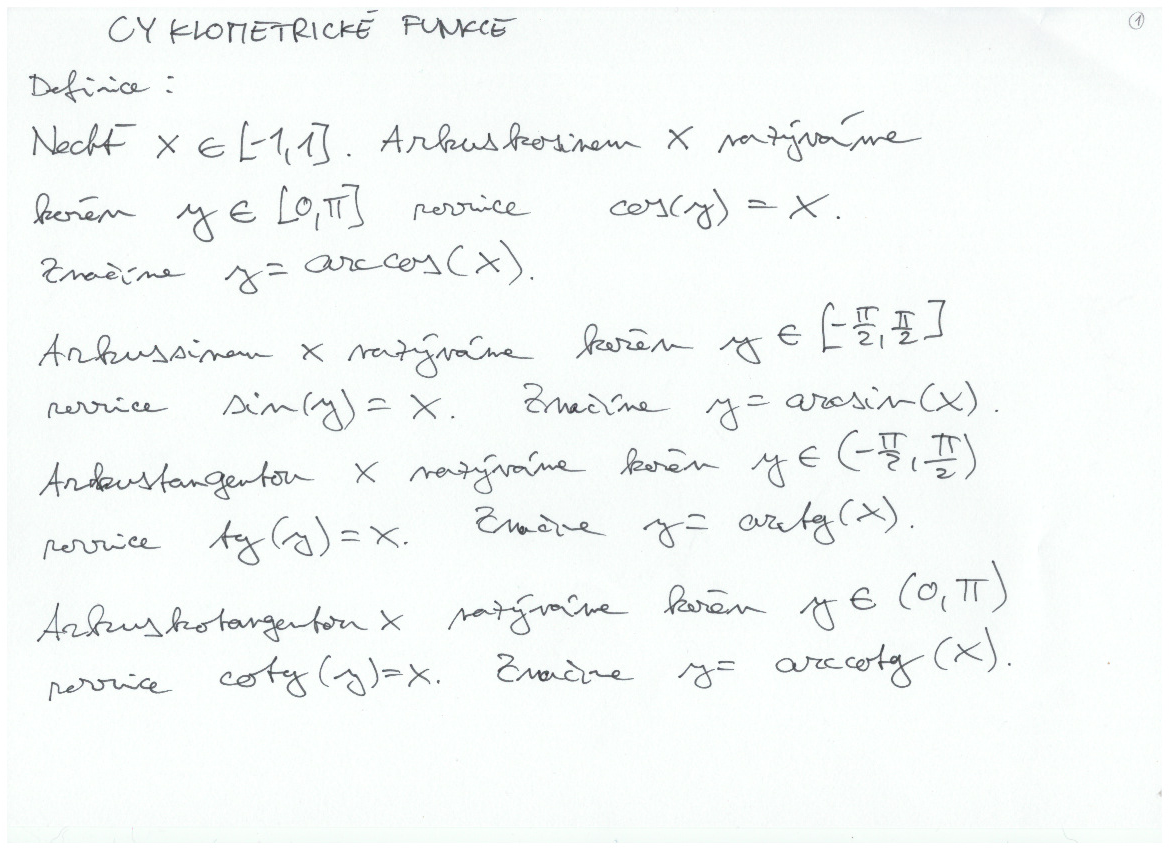 CYKLOMETRICKÉ FUNKCE
①
Definice :
Nechť x ∈ [-1,1]. Arkuskosinem x nazýváme
kořen y ∈ [0,π] rovnice cos(y) = x.
Značíme y = arccos(x).
Arkussinem x nazýváme kořen y ∈ [-π/2, π/2]
rovnice sin(y) = x. Značíme y = arcsin(x).
Arkustangentou x nazýváme kořen y ∈ (-π/2, π/2)
rovnice tg(y) = x. Značíme y = arctg(x).
Arkuskotangentou x nazýváme kořen y ∈ (0,π)
rovnice cotg(y)=x. Značíme y = arccotg(x).